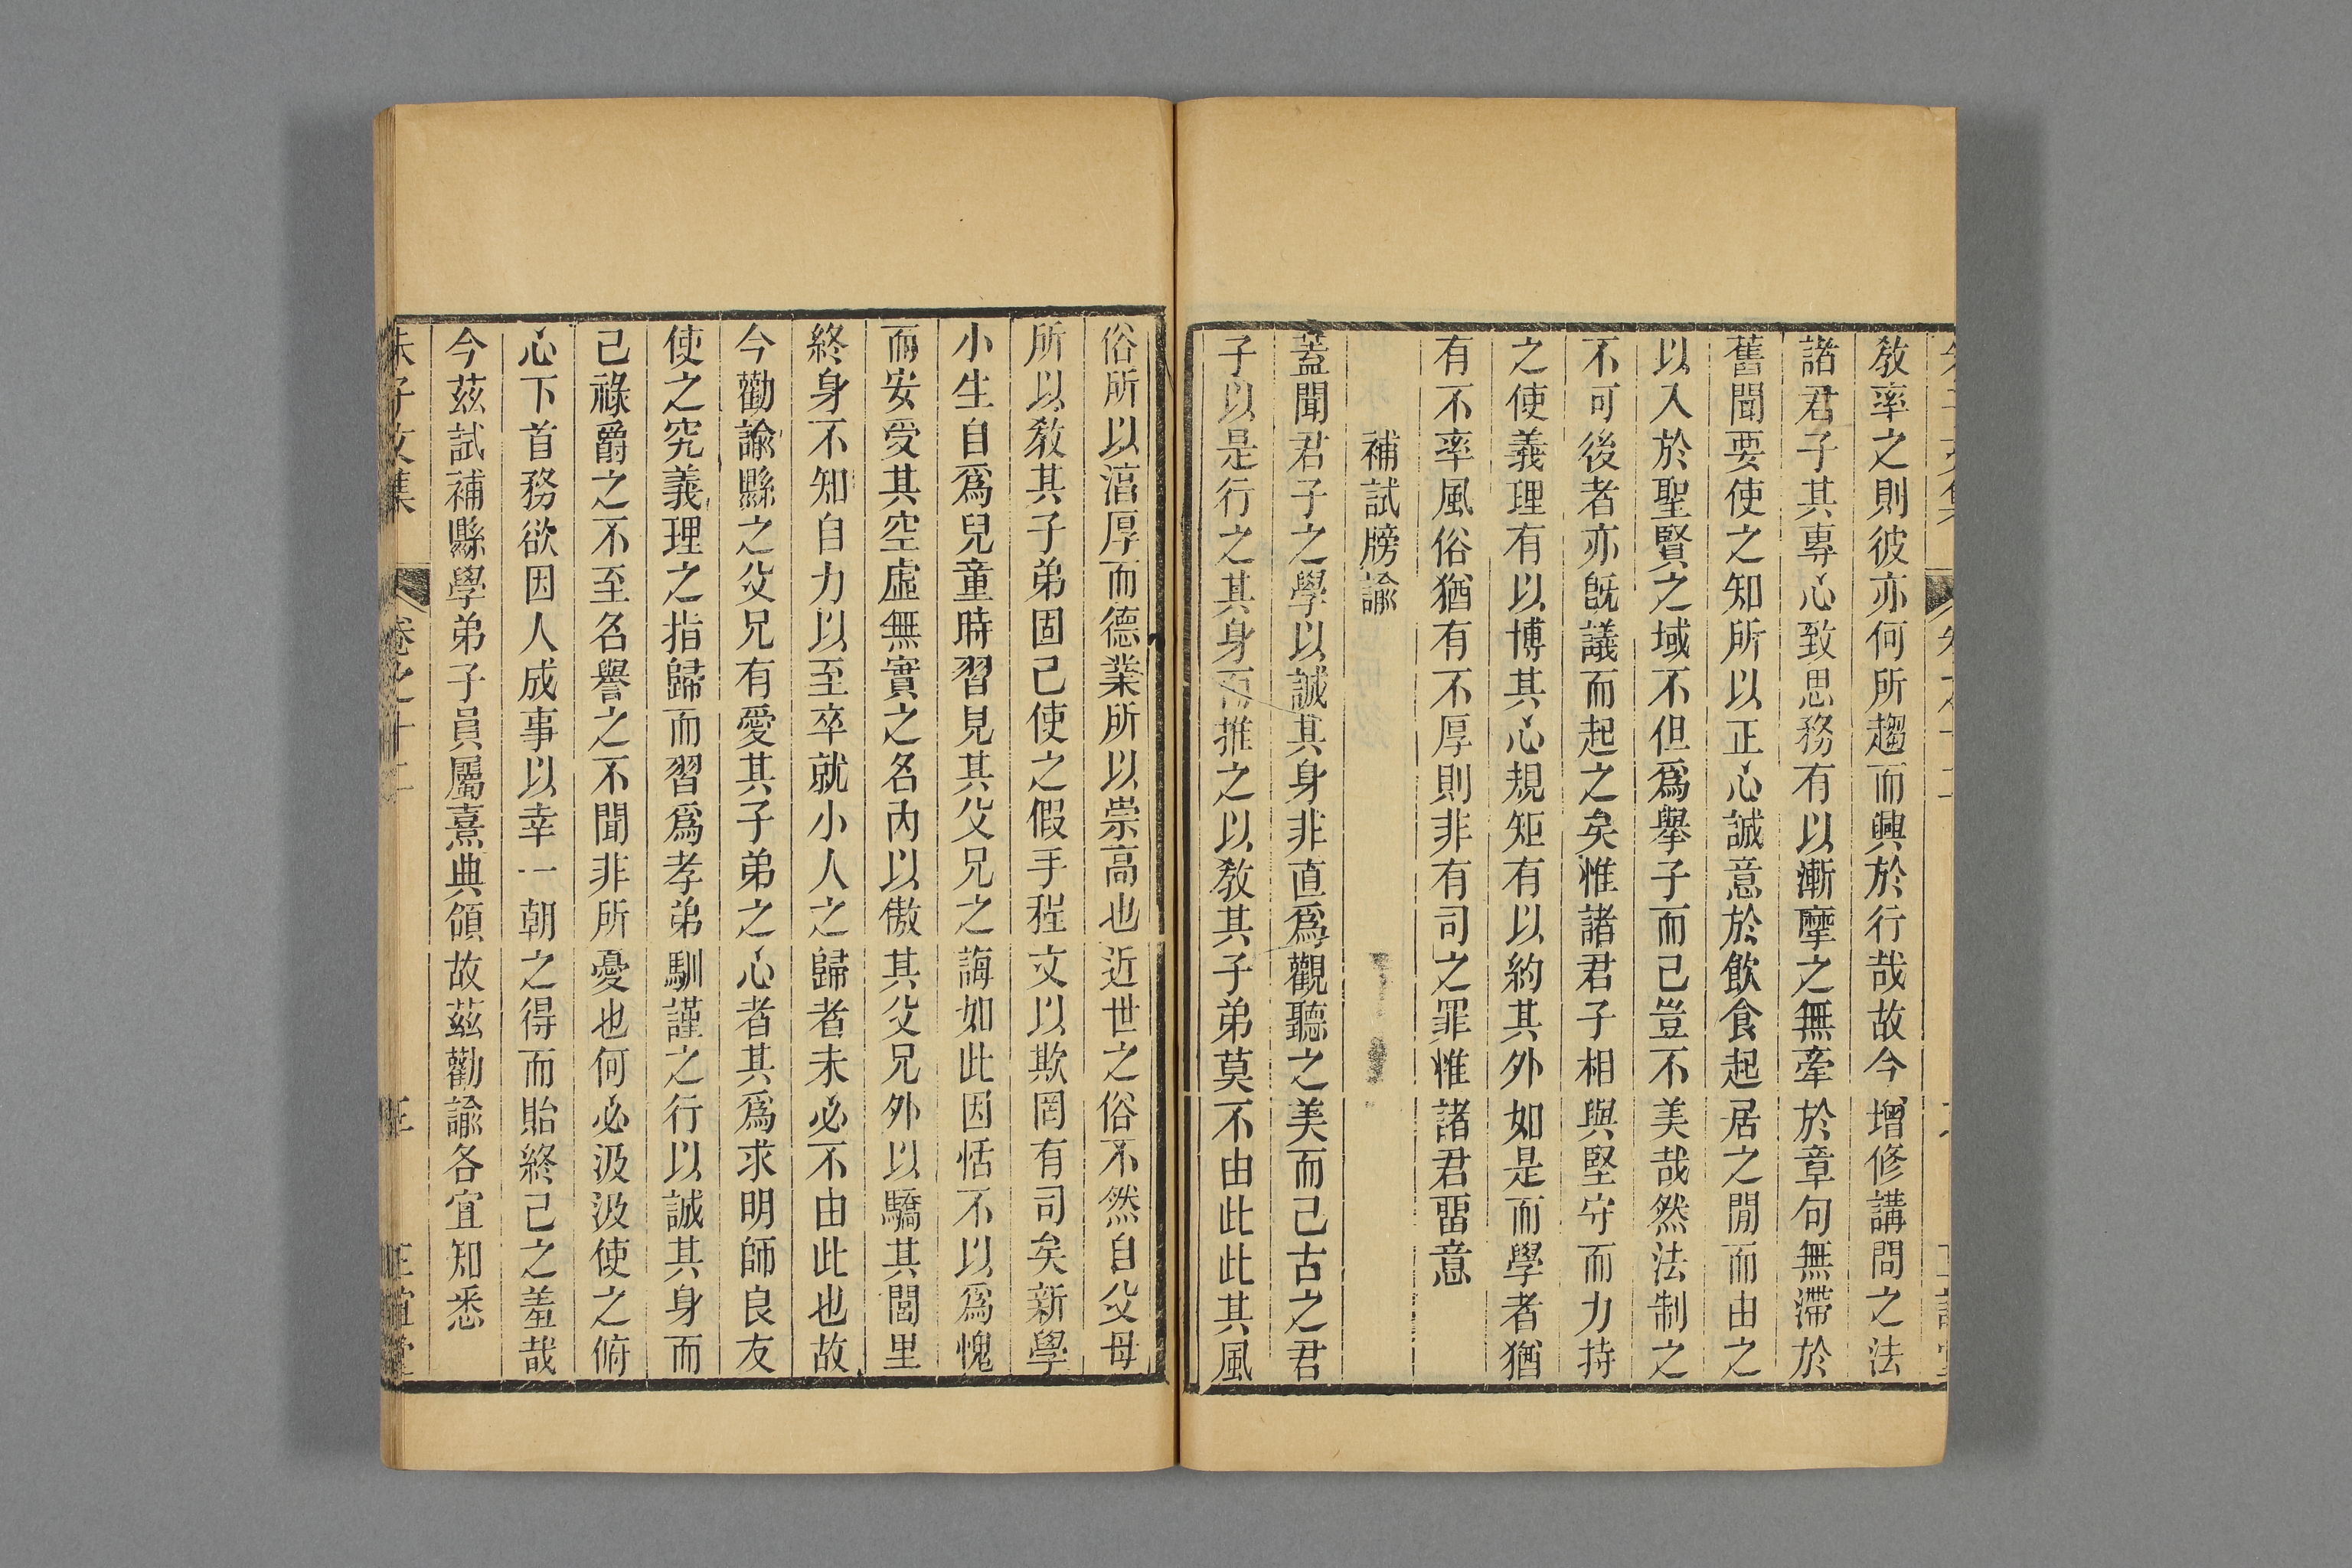 敎率之則彼亦何所趨而興於行哉故今增修講問之法
諸君子其專心致思務有以漸摩之無牽於章句無滯於
舊聞要使之知所以正心誠意於飲食起居之閒而由之
以入於聖賢之域不但爲舉子而己豈不美哉然法制之
不可後者亦旣議而起之矣惟諸君子相與堅守而力持
之使義理有以博其心規矩有以約其外如是而學者猶
有不率風俗猶有不厚則非有司之罪惟諸君畱意
補試牓諭
蓋聞君子之學以誠其身非直爲觀聽之美而己古之君
子以是行之其身而推之以敎其子弟莫不由此此其風
俗所以湻厚而德業所以崇高也近世之俗不然自父母
所以敎其子弟固己使之假手程文以欺罔有司矣新學
小生自爲兒童時習見其父兄之誨如此因恬不以爲愧
而安受其空虛無實之名內以傲其父兄外以驕其閭里
終身不知自力以至卒就小人之歸者未必不由此也故
今勸諭縣之父兄有愛其子弟之心者其爲求明師良友
使之究義理之指歸而習爲孝弟馴謹之行以誠其身而
己祿爵之不至名譽之不聞非所憂也何必汲汲使之俯
心下首務欲因人成事以幸一朝之得而貽終己之羞哉
今茲試補縣學弟子員屬熹典領故茲勸諭各宜知悉
朱子文集 卷之十二 正誼堂